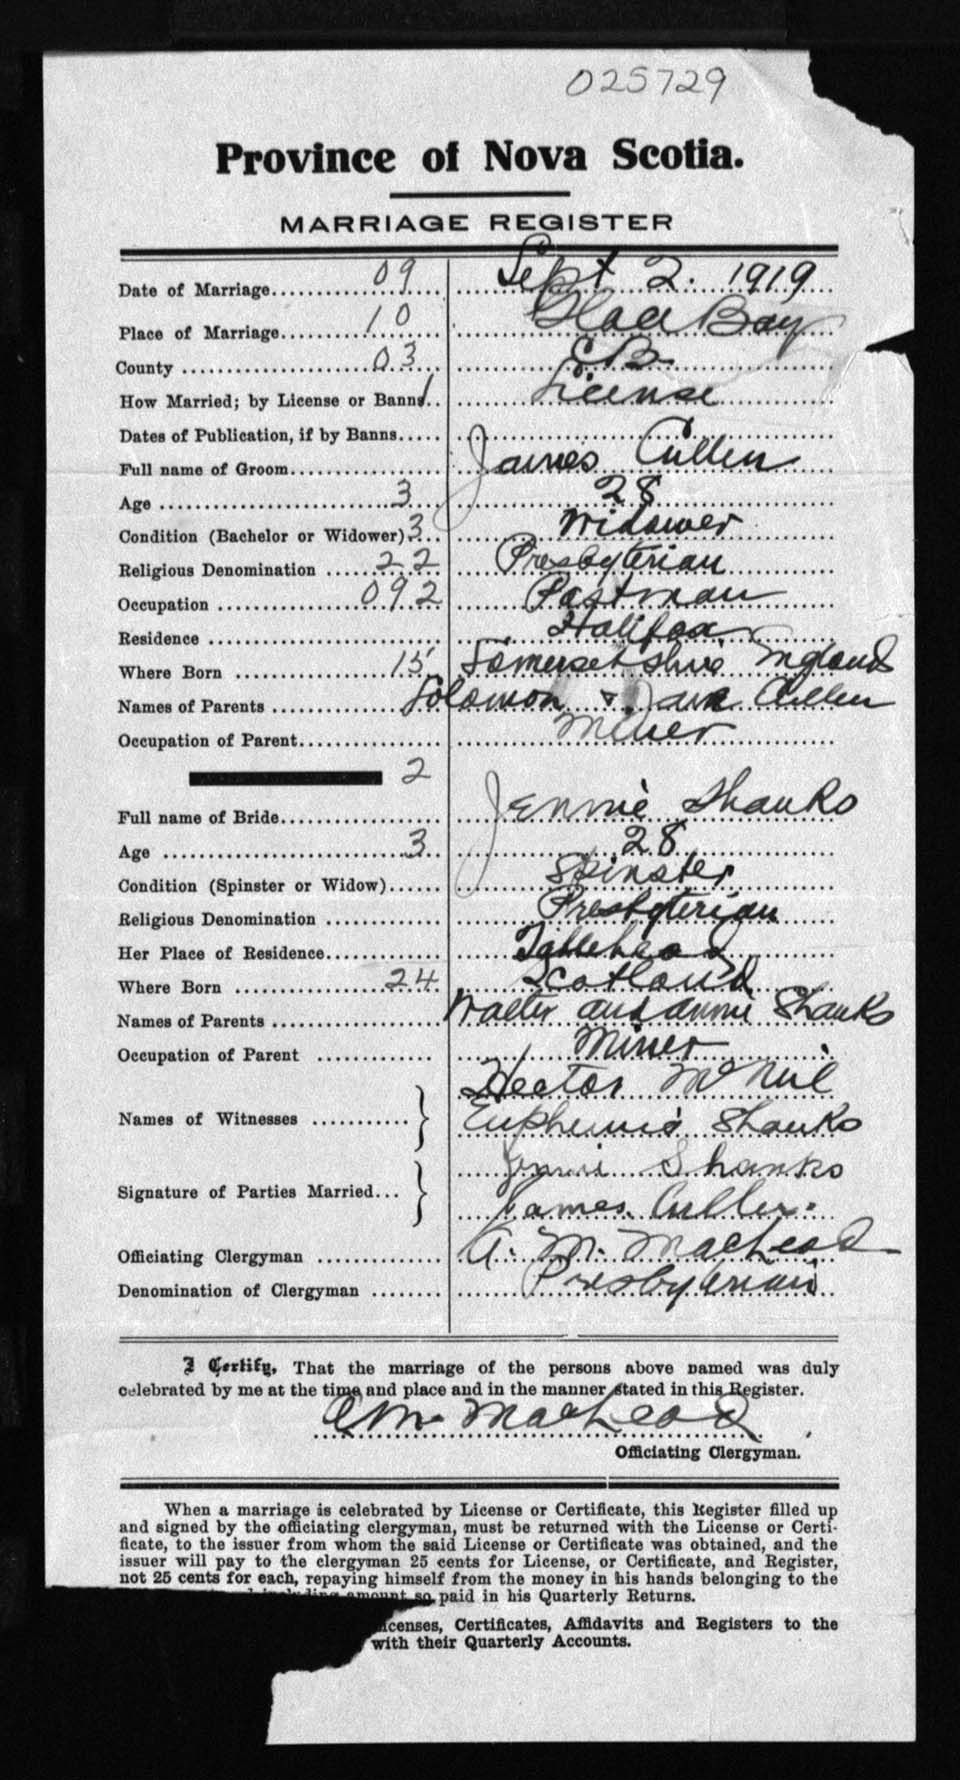 025729
Province of Nova Scotia.
MARRIAGE REGISTER
Date of Marriage 09 Sept 2. 1919
Place of Marriage 10 Glace Bay
County 03 C B
How Married; by License or Banns 1 License
Dates of Publication, if by Banns
Full name of Groom James Cullen
Age 3 28
Condition (Bachelor or Widower) 3 Widower
Religious Denomination 22 Presbyterian
Occupation 092 Postman
Residence Halifax
Where Born 15 Somersetshire England
Names of Parents Solomon & Jane Cullen
Occupation of Parent Miner
2
Full name of Bride Jennie Shanks
Age 3 28
Condition (Spinster or Widow) Spinster
Religious Denomination Presbyterian
Her Place of Residence Tablehead
Where Born 24 Scotland
Names of Parents Walter and Annie Shanks
Occupation of Parent Miner
Hector McNeil
Names of Witnesses
Euphemia Shanks
Jennie Shanks
Signature of Parties Married
James Cullen.
Officiating Clergyman A. M. MacLeod
Denomination of Clergyman Presbyterian
I Certify, That the marriage of the persons above named was duly
celebrated by me at the time and place and in the manner stated in this Register.
A M. MacLeod
Officiating Clergyman.
When a marriage is celebrated by License or Certificate, this Register filled up
and signed by the officiating clergyman, must be returned with the License or Certi-
ficate, to the issuer from whom the said License or Certificate was obtained, and the
issuer will pay to the clergyman 25 cents for License, or Certificate, and Register,
not 25 cents for each, repaying himself from the money in his hands belonging to the
including amount so paid in his Quarterly Returns.
icenses, Certificates, Affidavits and Registers to the
with their Quarterly Accounts.